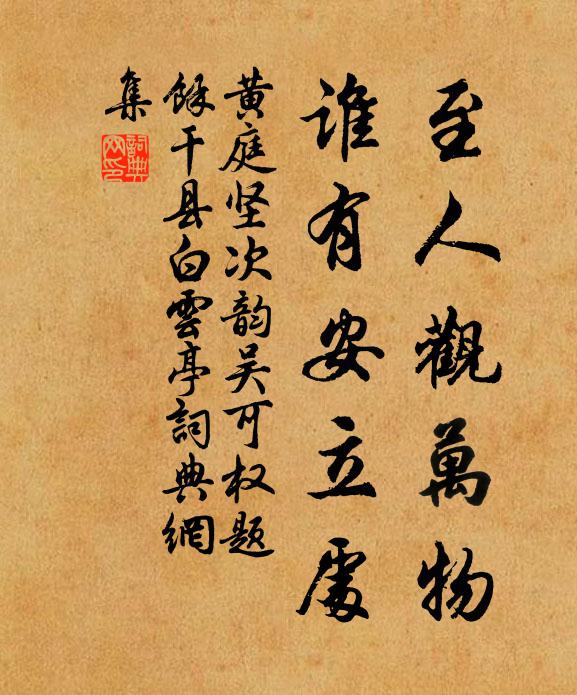 至人觀萬物
誰有安立處
黄庭坚次韵吴可权题
馀干县白雲亭詞典網
集
詞典网印